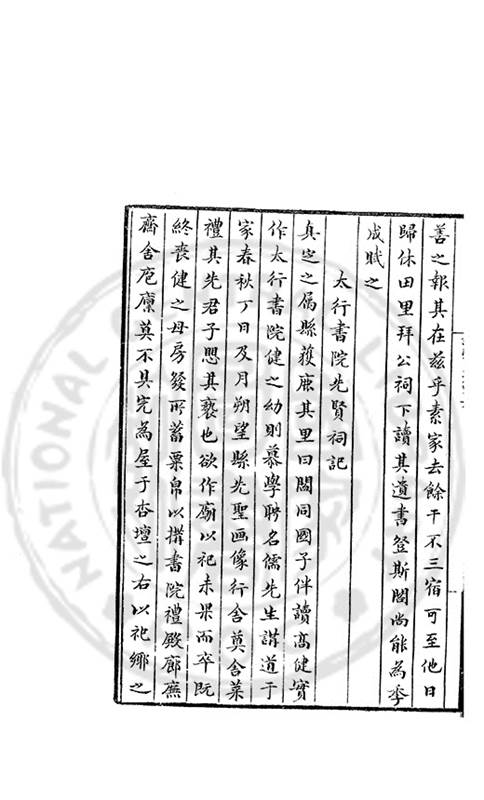 善之報其在茲乎素家去餘干不三宿可至他日
歸休田里拜公祠下讀其遺書登斯閣尚能為季
成賦之
太行書院先賢祠記
真定之屬縣獲鹿其里曰閻同國子伴讀高健實
作太行書院健之幼則慕學聘名儒先生講道于
家春秋丁日及月朔望縣先聖画像行舍奠舍菜
禮其先君子思其褻也欲作廟以祀未果而卒既
終喪健之母房發所蓄粟帛以搆書院禮殿廊廡
齋舍庖廩莫不具完為屋于杏壇之右以祀鄉之
NATIONAL CENTRAL LIBRARY